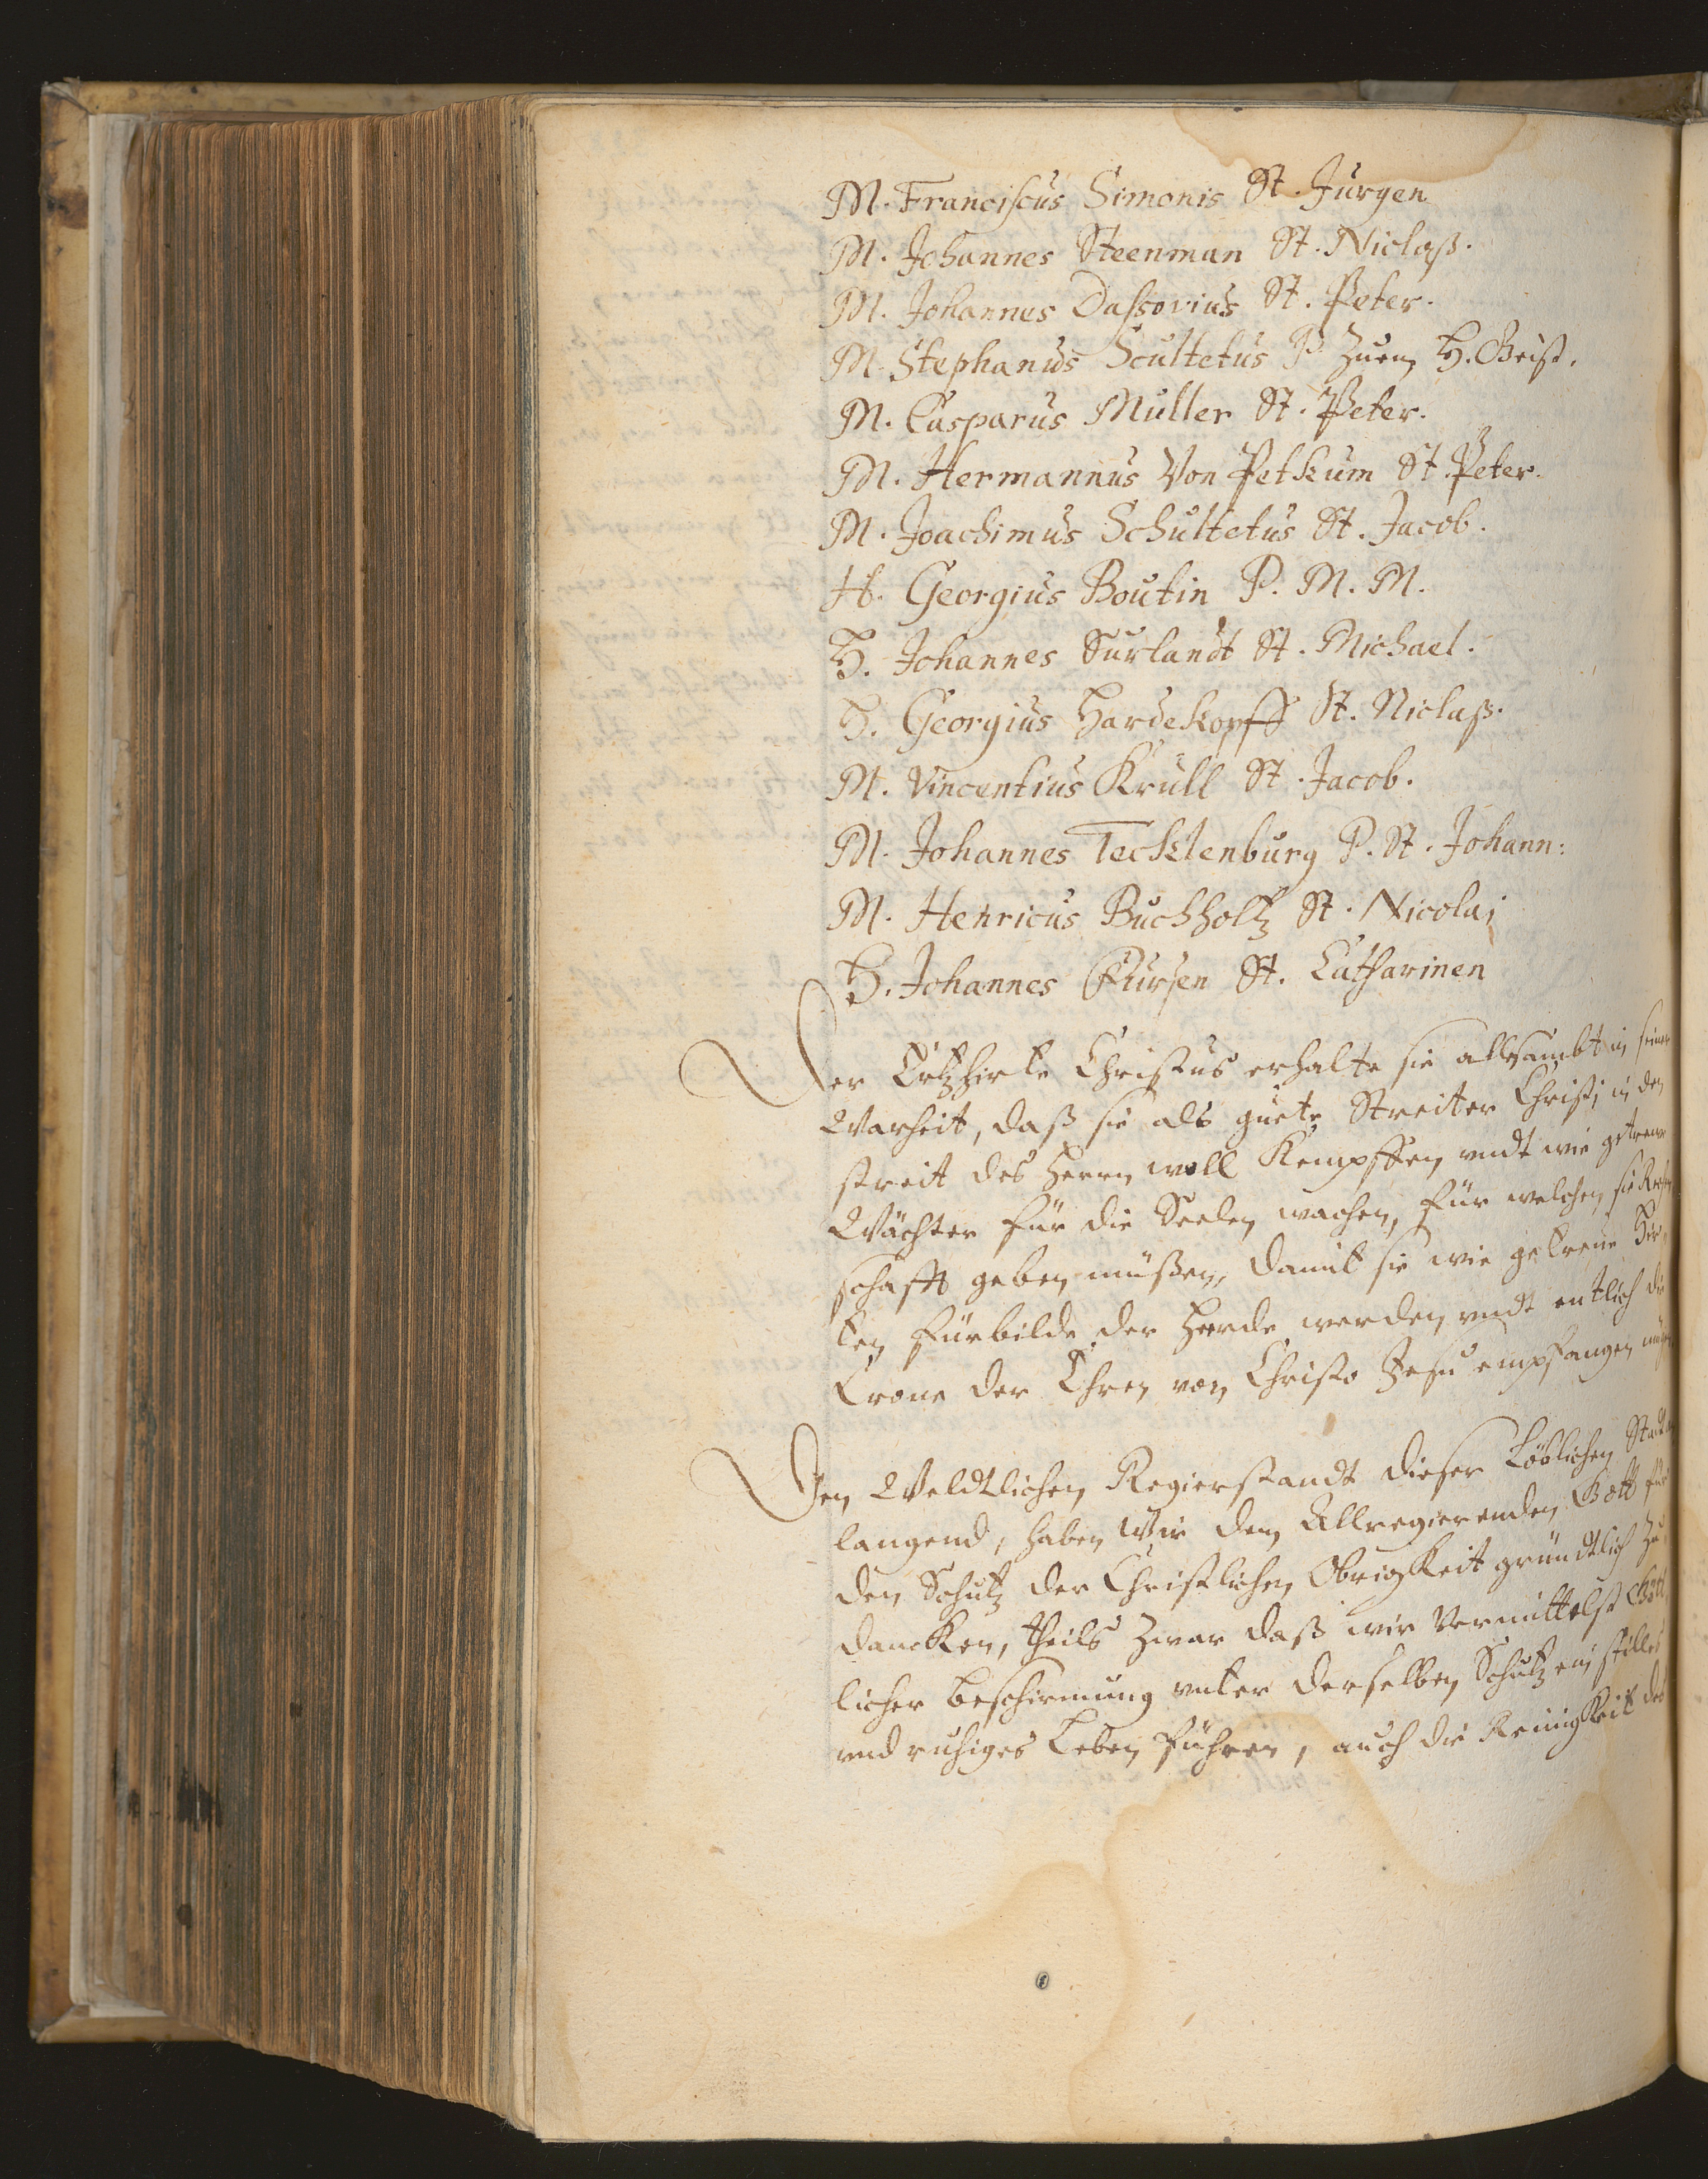 M. Franciscus Simonis St. Jurgen
M. Johannes Steenman St. Niclaß.
M. Johannes Dassovius St. Peter.
M. Stephanus Scultetus P. Zum H. Geist.
M. Casparus Muller St. Peter.
M. Hermannus Von Petkum St. Peter.
M. Joachimus Schultetus St. Jacob.
H. Georgius Boutin P. M. M.
H. Johannes Surlandt St. Michael.
H. Georgius Hardekopff St. Niclaß.
M. Vincentius Krull St. Jacob.
M. Johannes Tecklenburg P. St. Johann:
M. Henricus Buchholtz St. Nicolai
H. Johannes Fursen St. Catharinen
Der Ertzhirte Christus erhalte sie allesambt in seiner
Warheit, daß sie als guete Streiter Christi in den
streit des Herren woll Kempffen vndt wie getreue
Wächter für die Seelen wachen, für welchen sie
schafft geben müßen, damit sie wie getreue Hir¬
ten fürbilde der Herde werden vndt entlich die
Crone der Ehren von Christo Jesu empfangen
Den Weldtlichen Regierstandt dieser Löblichen
langend, haben Wir dem Allregierenden Gott für
den Schutz der Christlichen Obrigkeit gründtlich zu
dancken, theils zwar daß wir Vermittelst Gött¬
licher beschirmung vnter derselben Schutz ein stilles
vnd ruhiges Leben führen, auch die Reinigkeit des